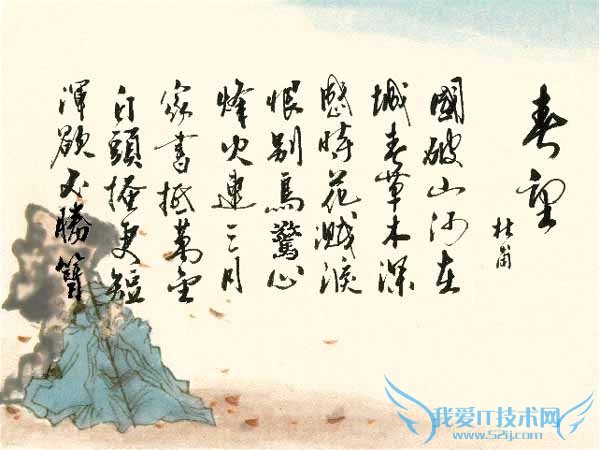 春望
杜甫
國破山河在
城春草木深
感時花濺淚
恨別鳥驚心
烽火連三月
家書抵萬金
白頭搔更短
渾欲不勝簪
我爱IT技术网
www.52ij.com